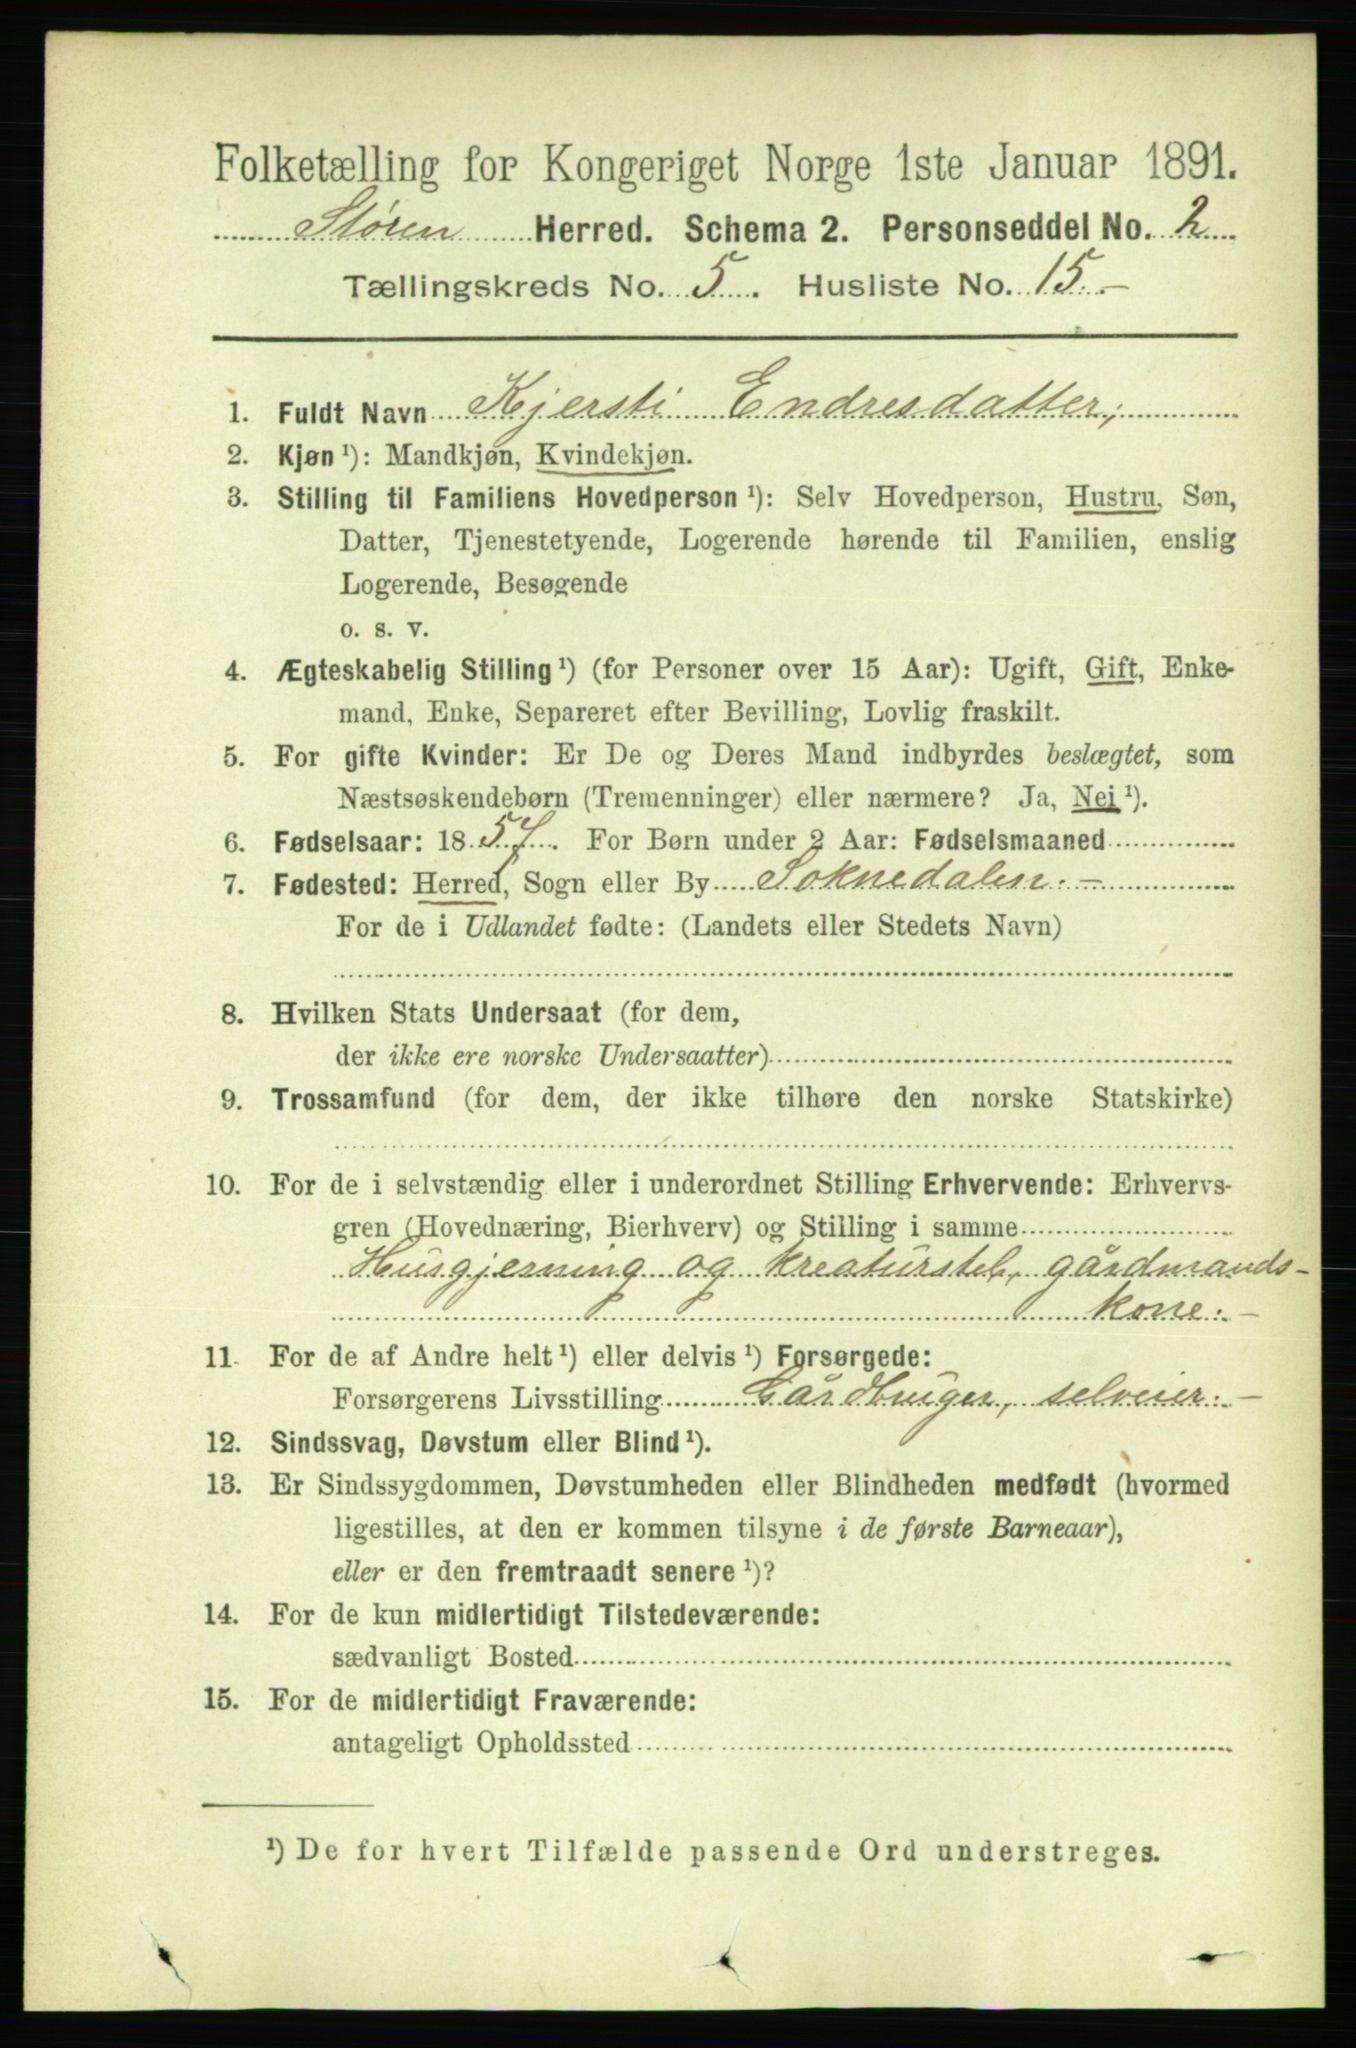 Folketælling for Kongeriget Norge 1ste Januar 1891.
Støren Herred. Schema 2. Personseddel No. 2
Tællingskreds No. 5. Husliste No. 15.-
1. Fuldt Navn Kjersti Endresdatter,
2. Kjøn ¹): Mandkjøn, Kvindekjøn.
3. Stilling til Familiens Hovedperson ¹): Selv Hovedperson, Hustru, Søn,
Datter, Tjenestetyende, Logerende hørende til Familien, enslig
Logerende, Besøgende
o. s. v.
4. Ægteskabelig Stilling ¹) (for Personer over 15 Aar): Ugift, Gift, Enke-
mand, Enke, Separeret efter Bevilling, Lovlig fraskilt.
5. For gifte Kvinder: Er De og Deres Mand indbyrdes beslægtet, som
Næstsøskendebørn (Tremenninger) eller nærmere? Ja, Nei ¹).
6. Fødselsaar: 1857. For Børn under 2 Aar: Fødselsmaaned
7. Fødested: Herred, Sogn eller By Soknedalen.-
For de i Udlandet fødte: (Landets eller Stedets Navn)
8. Hvilken Stats Undersaat (for dem,
der ikke ere norske Undersaatter)
9. Trossamfund (for dem, der ikke tilhøre den norske Statskirke)
10. For de i selvstændig eller i underordnet Stilling Erhvervende: Erhvervs-
gren (Hovednæring, Bierhverv) og Stilling i samme
Husgjerning og kreaturstel, gårdmands-
kone.-
11. For de af Andre helt ¹) eller delvis ¹) Forsørgede:
Forsørgerens Livsstilling Gårdbruger, selveier.-
12. Sindssvag, Døvstum eller Blind ¹).
13. Er Sindssygdommen, Døvstumheden eller Blindheden medfødt (hvormed
ligestilles, at den er kommen tilsyne i de første Barneaar),
eller er den fremtraadt senere ¹)?
14. For de kun midlertidigt Tilstedeværende:
sædvanligt Bosted
15. For de midlertidigt Fraværende:
antageligt Opholdssted
¹) De for hvert Tilfælde passende Ord understreges.